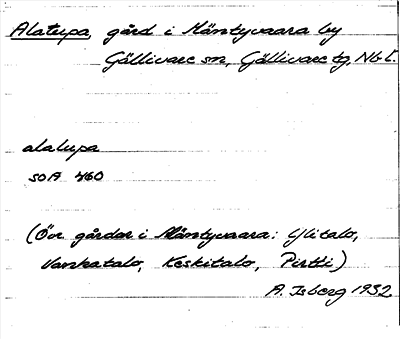 Alatupa, gård i Mäntyvaara by
Gällivare sn, Gällivare tg, Nb l.
alatupa
SOA 460
(Öv. gårdar i Mäntyvaara: Ylitalo,
Vanhatalo, Keskitalo, Pirtti)
A. Isberg 1932